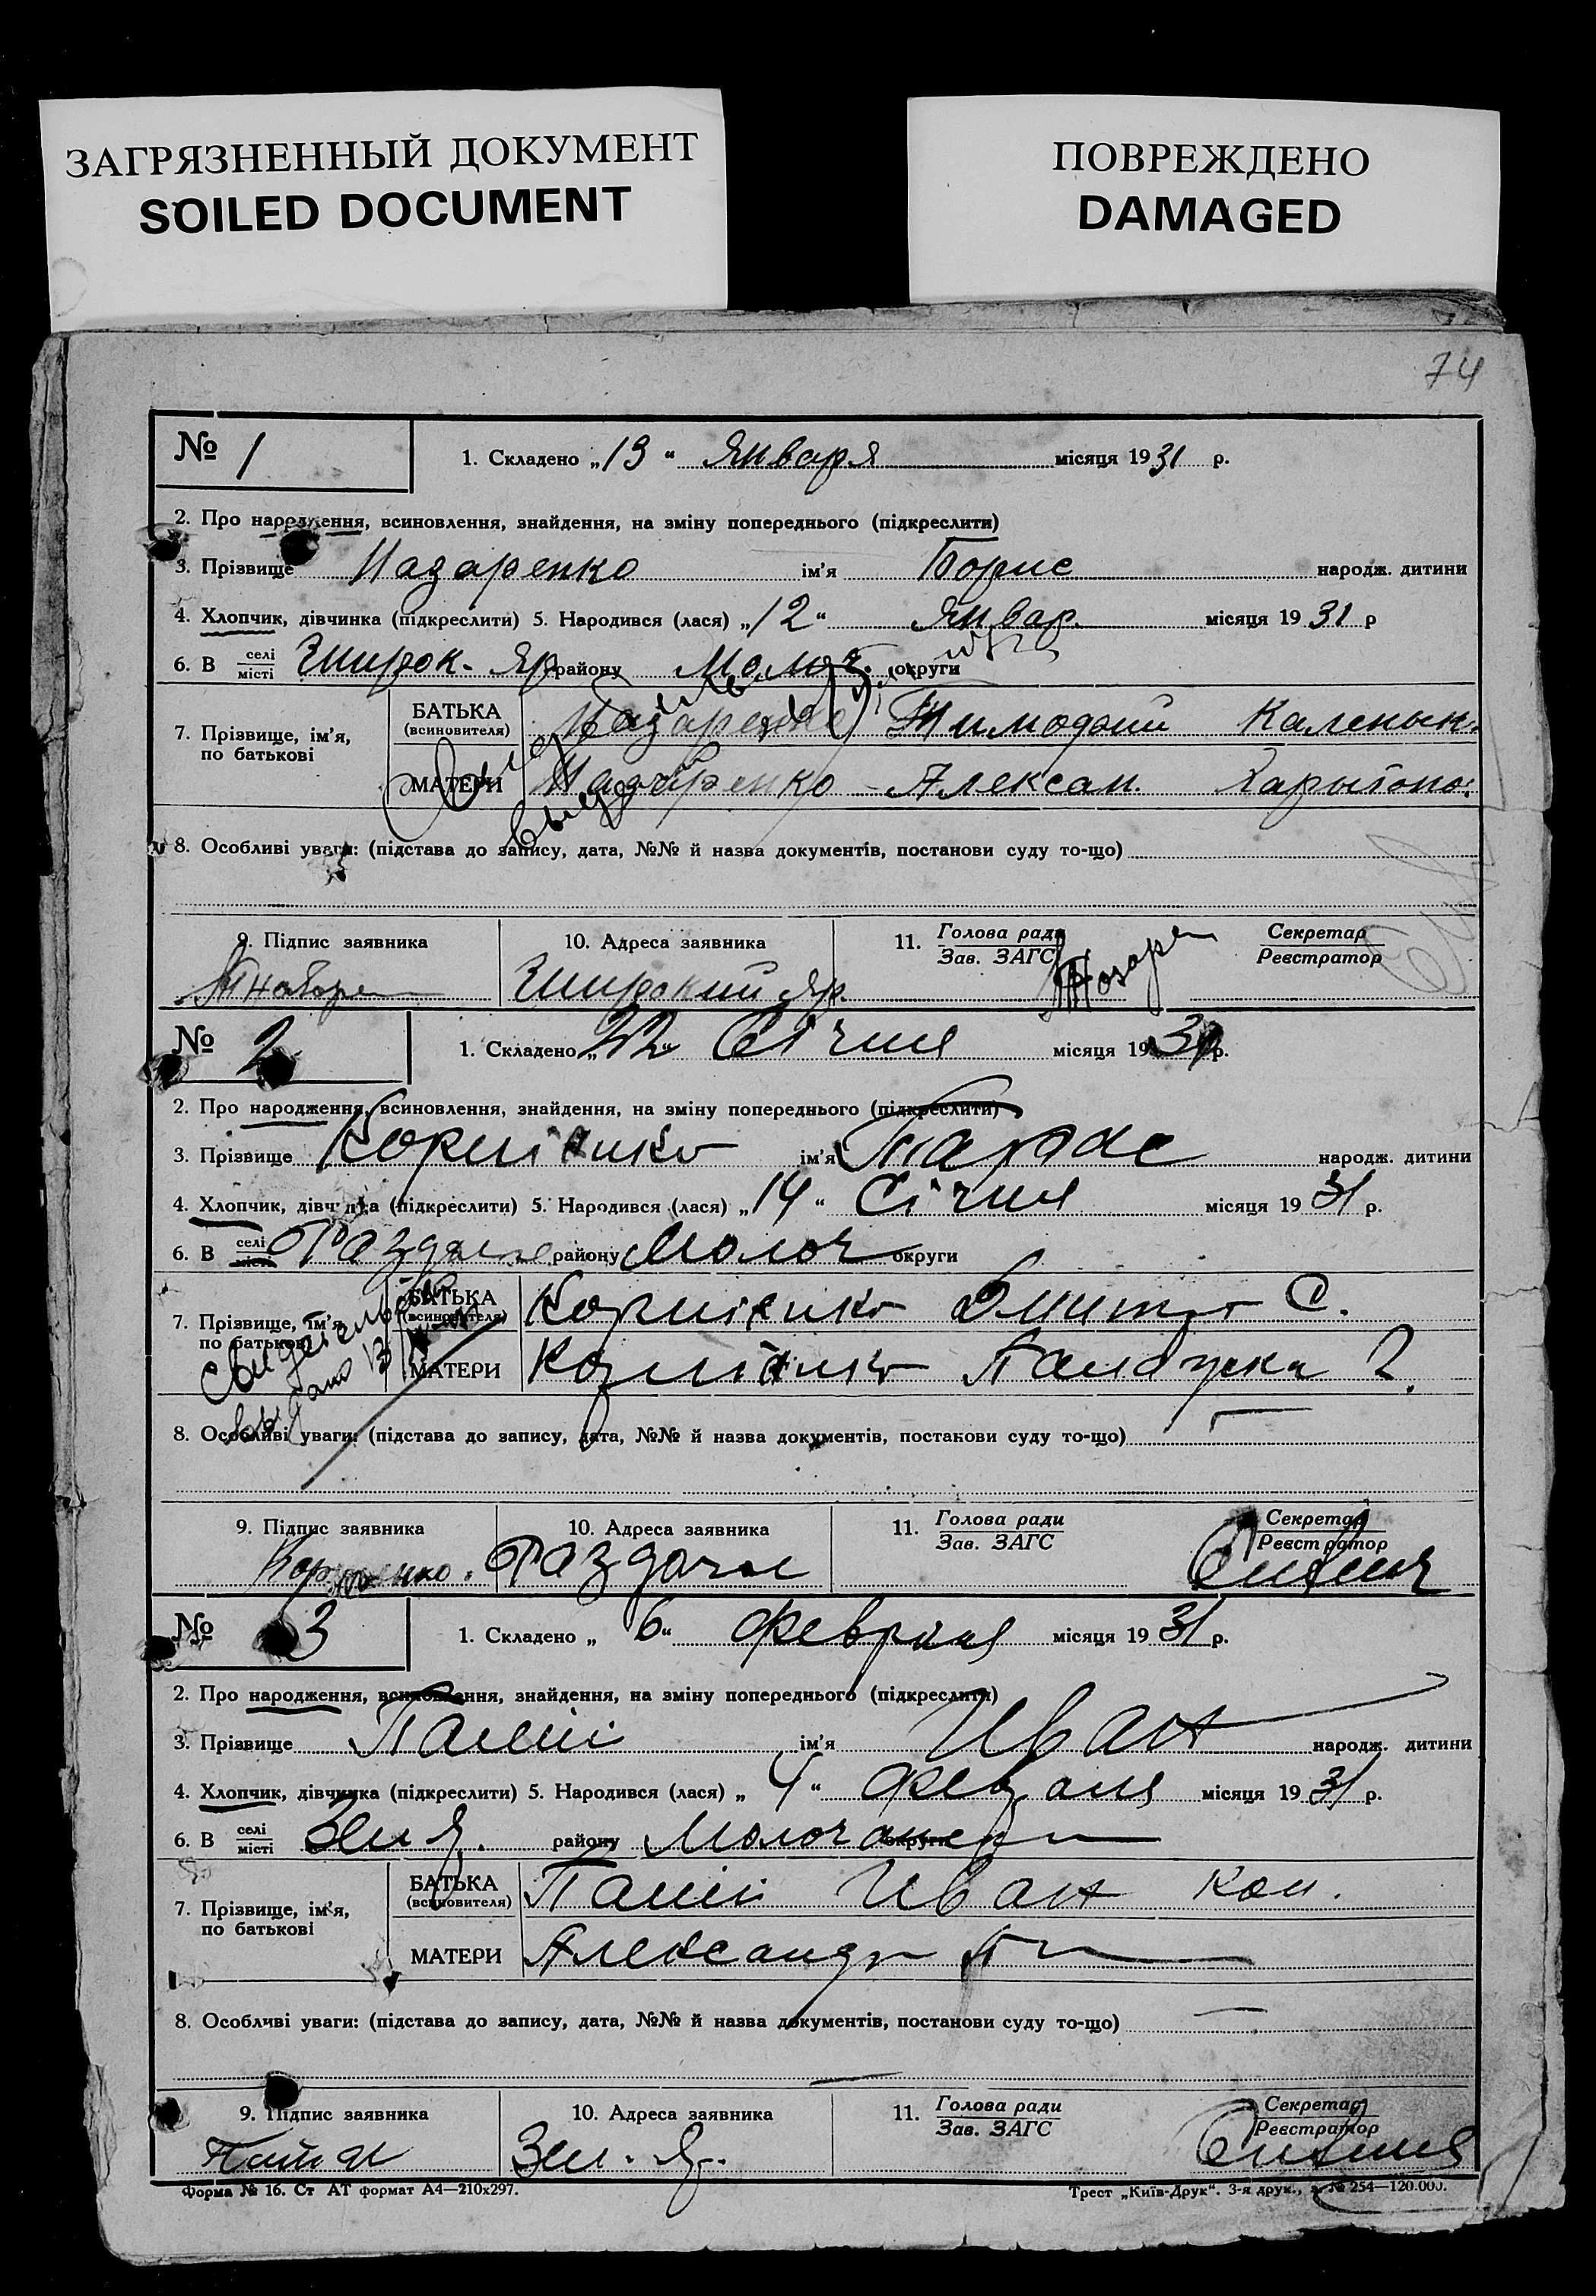 ЗАГРЯЗНЕННЫЙ ДОКУМЕНТ
SOILED DOCUMENT
ПОВРЕЖДЕНО
DAMAGED
74
№ 1
1. Складено „13“ Января місяця 1931 р.
2. Про народження, всиновлення, знайдення, на зміну попереднього (підкреслити)
3. Прізвище Назаренко ім'я Борис народж. дитини
4. Хлопчик, дівчинка (підкреслити) 5. Народився (лася) „12“ Январ. місяця 1931 р
6. В селі місті Широк. Яр району Молоч. округи
7. Прізвище, ім'я, по батькові
БАТЬКА (всиновителя) Назаренко Тимофий Каленик.
МАТЕРИ Назаренко Алексан. Харытоно.
8. Особливі уваги: (підстава до запису, дата, №№ й назва документів, постанови суду то-що)
9. Підпис заявника
10. Адреса заявника Широкий Яр.
11. Голова ради Зав. ЗАГС
Секретар Реєстратор
№ 2
1. Складено „22“ Січня місяця 1931 р.
2. Про народження, всиновлення, знайдення, на зміну попереднього (підкреслити)
3. Прізвище Корнієнко ім'я Тарас народж. дитини
4. Хлопчик, дівчинка (підкреслити) 5. Народився (лася) „14“ Січня місяця 1931 р.
6. В селі місті району Молоч округи
7. Прізвище, ім'я, по батькові
БАТЬКА (всиновителя) Корнієнко Дмитро С.
МАТЕРИ Корнієнко
8. Особливі уваги: (підстава до запису, дата, №№ й назва документів, постанови суду то-що)
9. Підпис заявника
10. Адреса заявника
11. Голова ради Зав. ЗАГС
Секретар Реєстратор
№ 3
1. Складено „6“ Февраля місяця 1931 р.
2. Про народження, всиновлення, знайдення, на зміну попереднього (підкреслити)
3. Прізвище ім'я Иван народж. дитини
4. Хлопчик, дівчинка (підкреслити) 5. Народився (лася) „4“ Февраля місяця 1931 р.
6. В селі місті району округи
7. Прізвище, ім'я, по батькові
БАТЬКА (всиновителя) Иван
МАТЕРИ Александр
8. Особливі уваги: (підстава до запису, дата, №№ й назва документів, постанови суду то-що)
9. Підпис заявника
10. Адреса заявника
11. Голова ради Зав. ЗАГС
Секретар Реєстратор
Форма № 16. Ст АТ формат А4—210х297.
Трест „Київ-Друк“. 3-я друк., з. № 254—120.000.